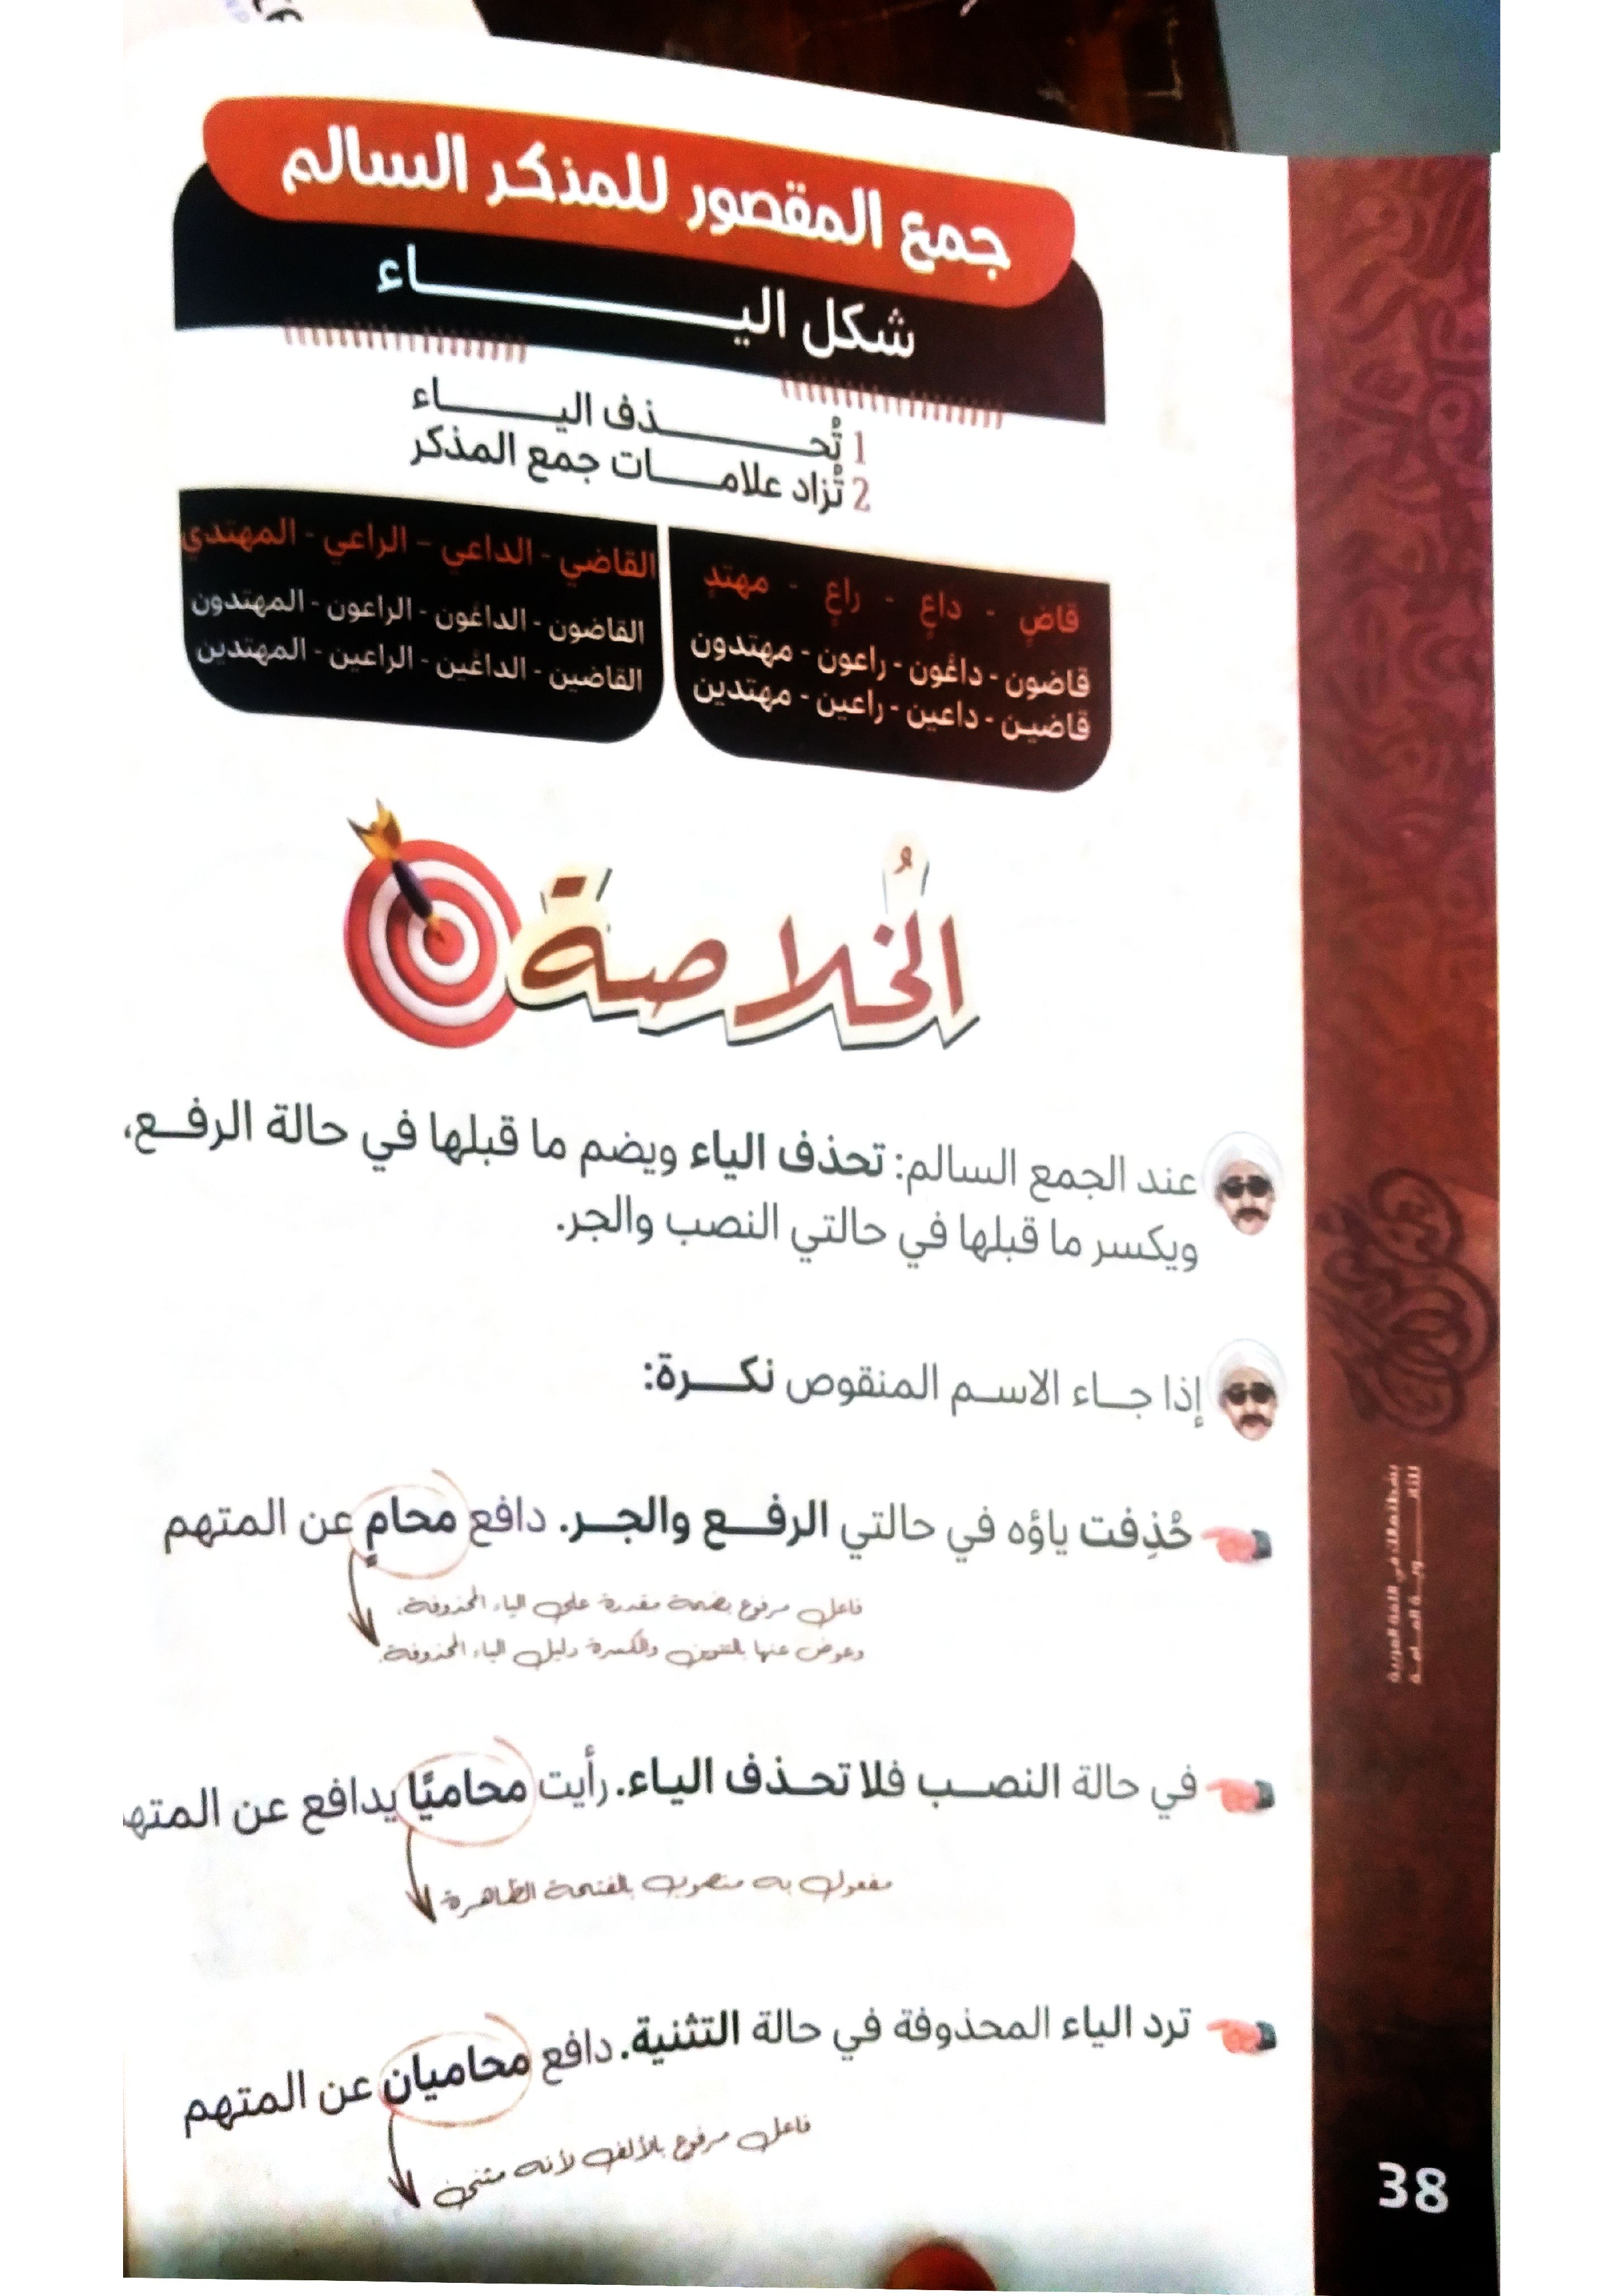 جمع المقصور للمذكر السالم
شكل اليـــــــــاء
1 تُحـــــــذف اليـــــــاء
2 تُزاد علامـــات جمع المذكر
قاضٍ - داعٍ - راعٍ - مهتدٍ
قاضون - داعُون - راعون - مهتدون
قاضيـن - داعين - راعين - مهتدين
القاضي - الداعي - الراعي - المهتدي
القاضون - الداعُون - الراعون - المهتدون
القاضين - الداعين - الراعين - المهتدين
الخُلاصة
عند الجمع السالم: تحذف الياء ويضم ما قبلها في حالة الرفــع،
ويكسر ما قبلها في حالتي النصب والجر.
إذا جــاء الاسـم المنقوص نكـــرة:
حُذِفت ياؤه في حالتي الرفــع والجــر. دافع محامٍ عن المتهم
فاعل مرفوع بضمة مقدرة على الياء المحذوفة.
وعوض عنها بالتنوين والكسرة دليل الياء المحذوفة.
في حالة النصــب فلا تحـذف الياء. رأيت محاميًا يدافع عن المتهـ
مفعول به منصوب بالفتحة الظاهرة
ترد الياء المحذوفة في حالة التثنية. دافع محاميان عن المتهم
فاعل مرفوع بالألف لأنه مثنى
38